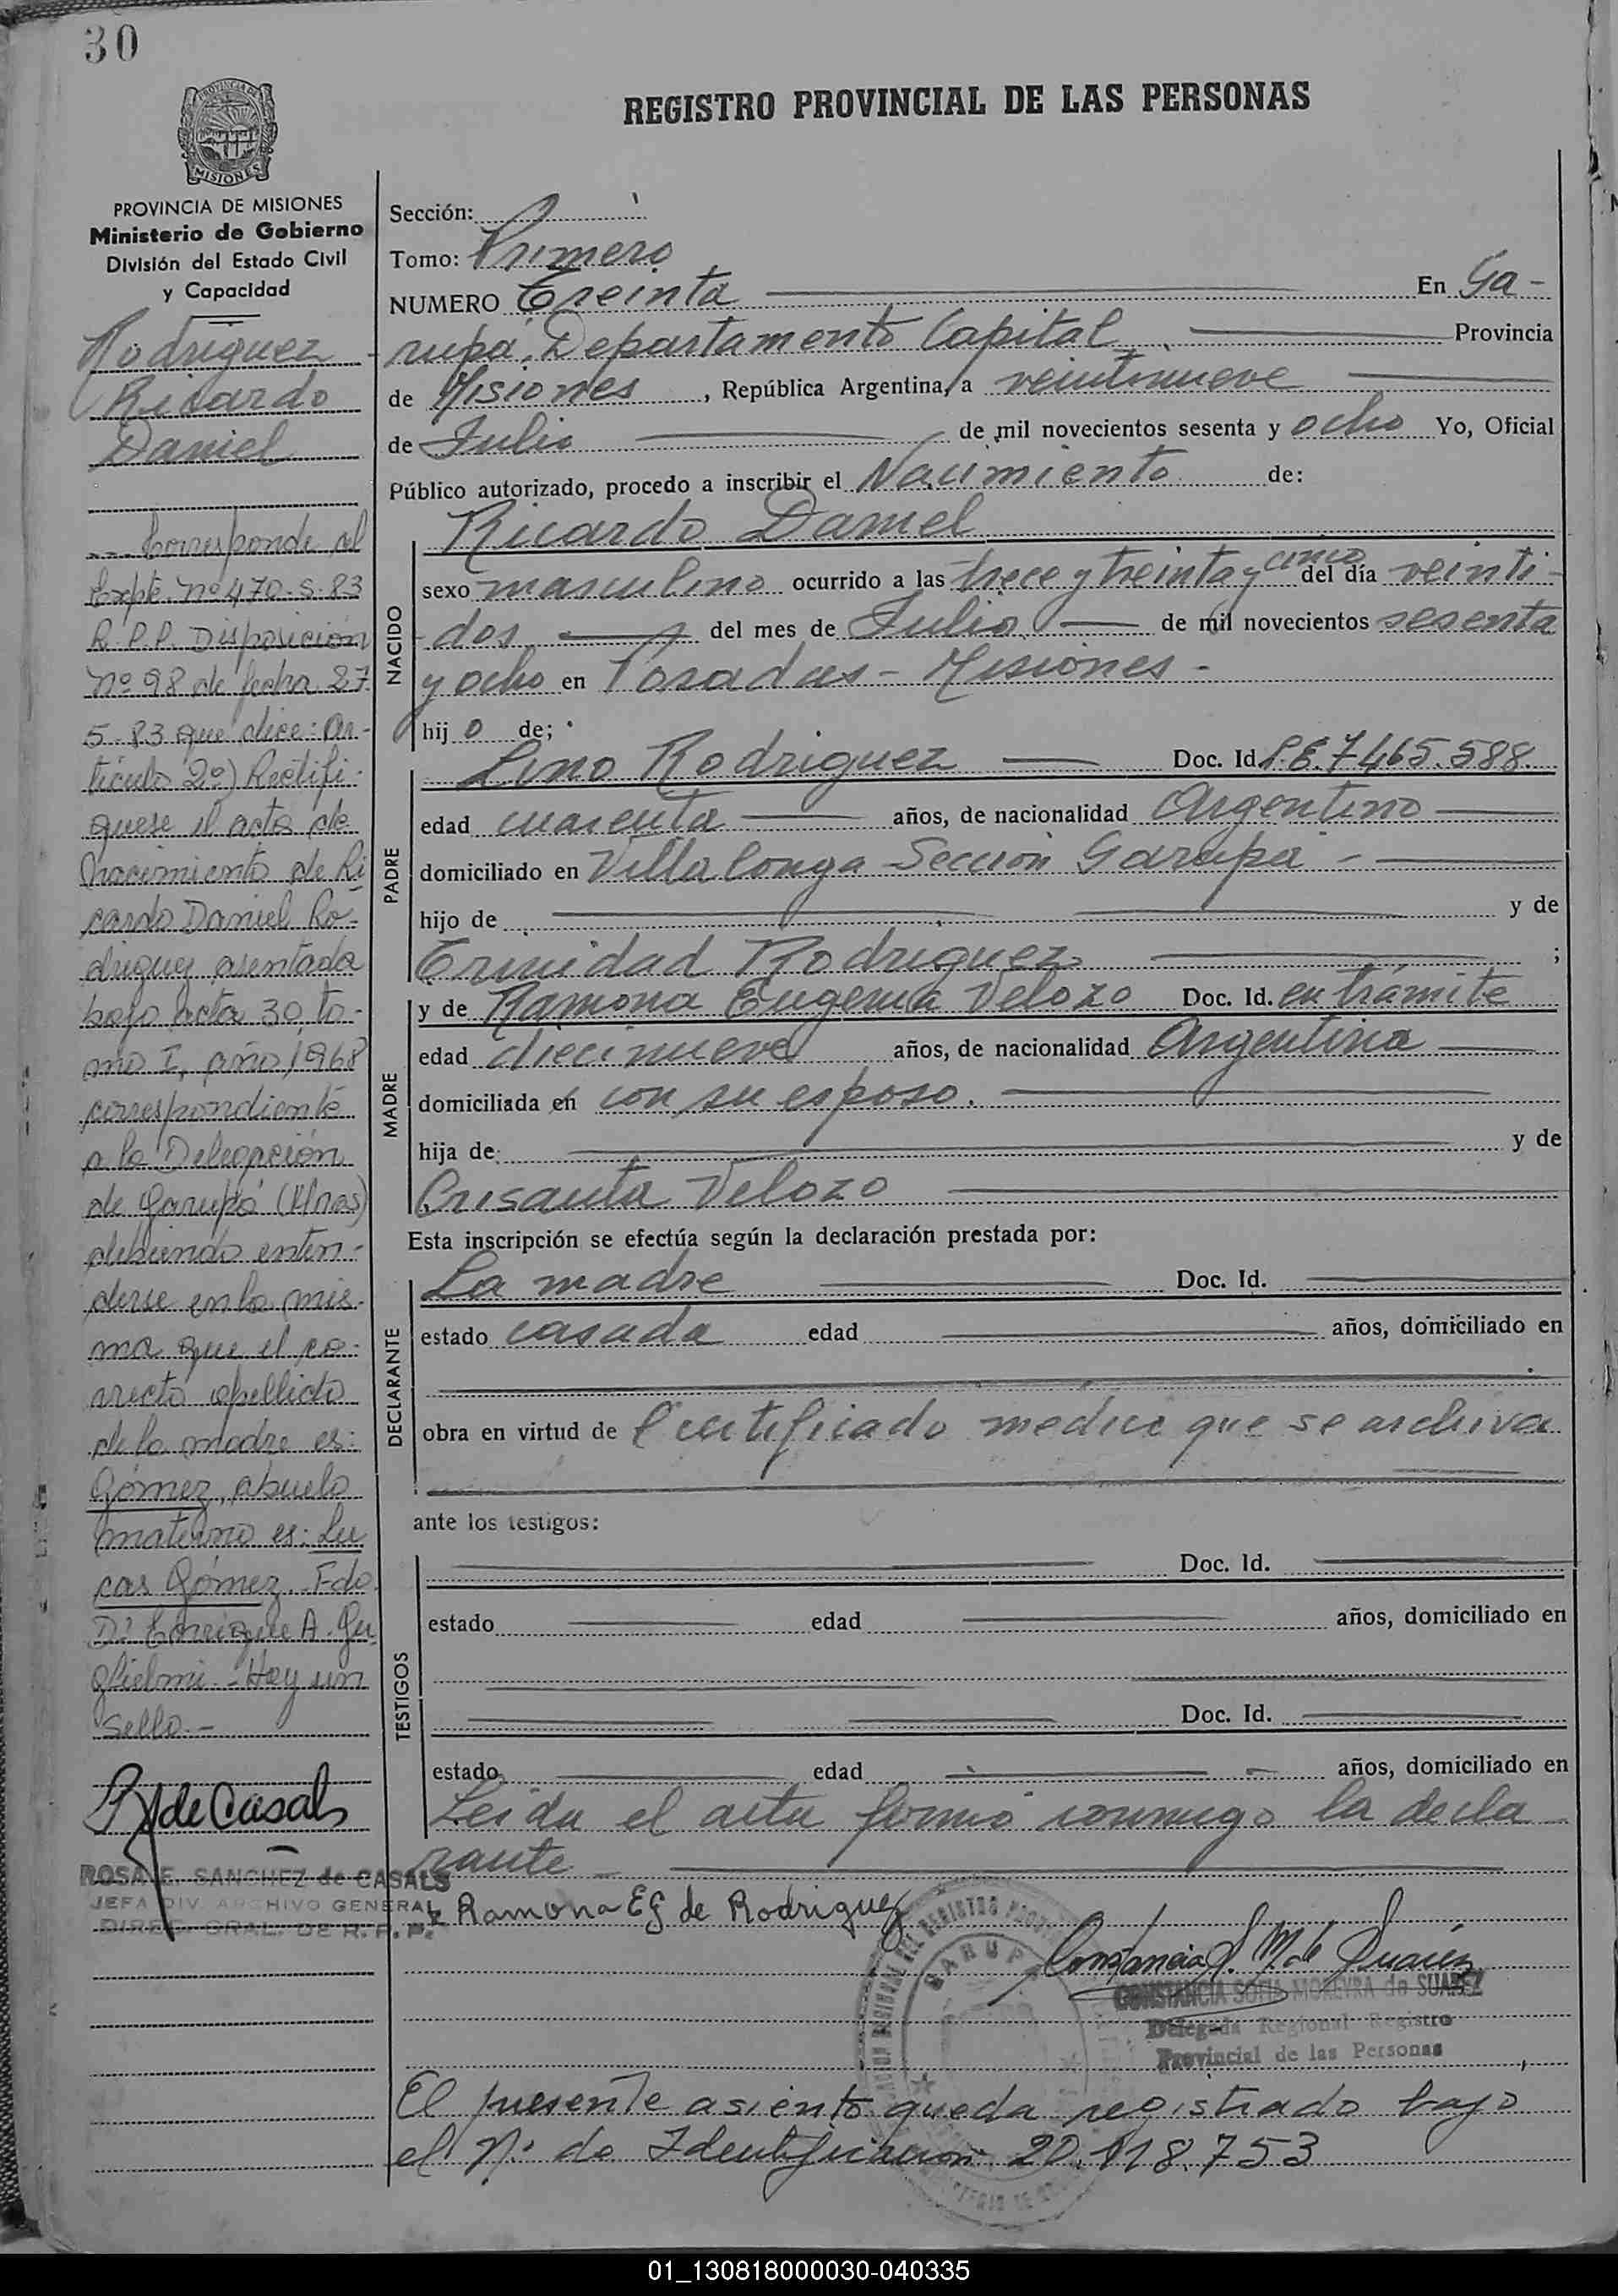 30
REGISTRO PROVINCIAL DE LAS PERSONAS
PROVINCIA DE MISIONES
MISIONES
PROVINCIA DE MISIONES
Ministerio de Gobierno
División del Estado Civil
y Capacidad
Rodriguez
Ricardo
Daniel
--- Corresponde al
Expte. nº 470-S-83
R.P.P. Disposición
nº 98 de fecha 27
5-83 que dice: Ar-
tículo 2º) Rectifi-
quese el acta de
nacimiento de Ri
cardo Daniel Ro-
driguez asentada
bajo acta 30, to-
mo I, año 1968
correspondiente
a la Delegación
de Garupá (Mnes)
debiendo enten-
derse en la mis-
ma que el co-
rrecto apellido
de la madre es:
Gómez, abuelo
materno es: Lu
cas Gómez. Fdo.
Dr. Enrique A. Gu
glielmi.- Hay un
sello.-
R de Casals
ROSA E. SANCHEZ de CASALS
JEFA DIV. ARCHIVO GENERAL
DIREC. GRAL. DE R. P. P.
Sección:
Tomo: Primero
NUMERO Treinta En Ga-
rupá, Departamento Capital Provincia
de Misiones, República Argentina, a veintinueve
de Julio de mil novecientos sesenta y ocho Yo, Oficial
Público autorizado, procedo a inscribir el Nacimiento de:
NACIDO
Ricardo Daniel
sexo masculino ocurrido a las trece y treinta y cinco del día veinti-
dos del mes de Julio de mil novecientos sesenta
y ocho en Posadas - Misiones -
hij o de;
PADRE
Lino Rodriguez Doc. Id. L.E. 7465.588.
edad cuarenta años, de nacionalidad Argentino
domiciliado en Villa Longa Sección Garupá -
hijo de y de
Trinidad Rodriguez ;
MADRE
y de Ramona Eugenia Velozo Doc. Id. en trámite
edad diecinueve años, de nacionalidad Argentina
domiciliada en con su esposo.
hija de: y de
Crisanta Velozo
Esta inscripción se efectúa según la declaración prestada por:
DECLARANTE
La madre Doc. Id.
estado casada edad años, domiciliado en
obra en virtud de Certificado medico que se archiva
ante los testigos:
TESTIGOS
Doc. Id.
estado edad años, domiciliado en
Doc. Id.
estado edad años, domiciliado en
Leida el acta firmó conmigo la decla
rante -
Ramona EG de Rodriguez
Constancia S. M. de Suárez
CONSTANCIA SOFIA MOREYRA de SUAREZ
Delegada Regional Registro
Provincial de las Personas
GARUPA
El presente asiento queda registrado bajo
el Nº de Identificación 20.118.753
01_130818000030-040335